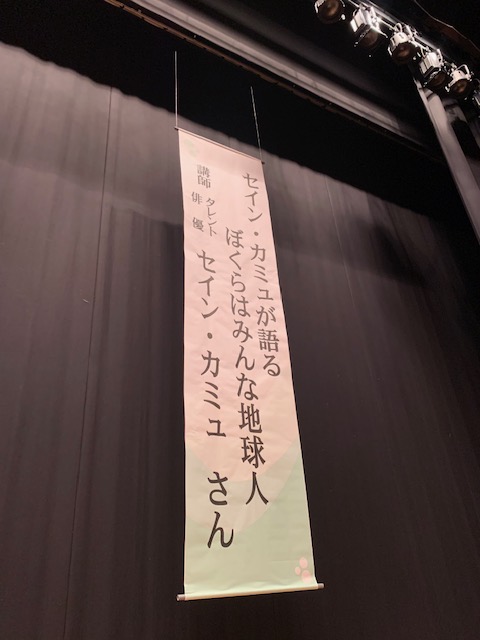 セイン・カミュが語る
ぼくらはみんな地球人
講師 タレント
俳優
セイン・カミュ さん